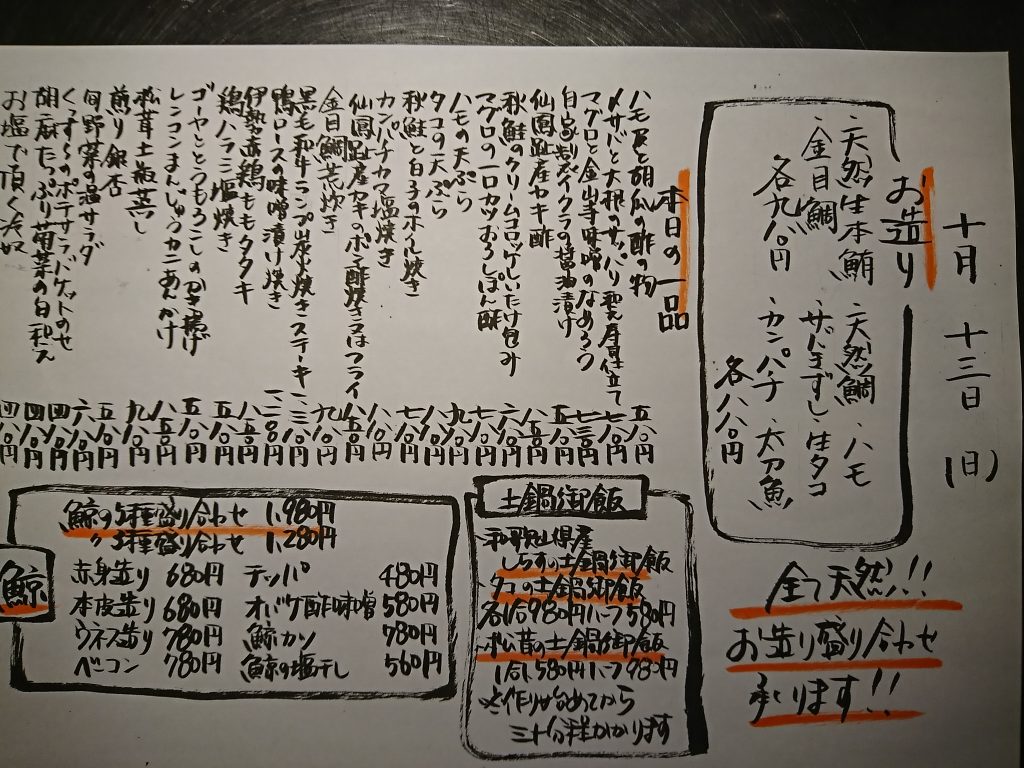 十月 十三日 (日)
お造り
・天然生本鮪
・金目鯛
各九八〇円
・天然鯛 ・ハモ
・サバきずし ・生タコ
・カンパチ ・太刀魚
各八八〇円
全て天然!!
お造り盛り合わせ
承ります!!
本日の一品
ハモ皮と胡瓜の酢の物 五八〇円
〆サバと大根のサッパリ和え寿司仕立て 七八〇円
マグロと金山寺味噌のなめろう 七三〇円
自家製イクラの醤油漬け 五八〇円
仙鳳趾産カキ酢 八五〇円
秋鮭のクリームコロッケしいたけ包み 六八〇円
マグロの一口カツおろしぽん酢 七八〇円
ハモの天ぷら 九八〇円
タコの天ぷら 八八〇円
秋鮭と白子のホイル焼き 七八〇円
カンパチカマ塩焼き 八八〇円
仙鳳趾産カキのポン酢焼き又はフライ 八五〇円
金目鯛荒炊き 九八〇円
黒毛和牛ランプ山椒焼きステーキ 一、三八〇円
鴨ロースの味噌漬け焼き 一、二八〇円
伊勢赤鶏ももタタキ 八八〇円
鶏ハラミ塩焼き 五八〇円
ゴーヤととうもろこしのかき揚げ 五八〇円
レンコンまんじゅうカニあんかけ 八八〇円
松茸土瓶蒸し 九八〇円
煎り銀杏 五八〇円
旬野菜の温サラダ 六八〇円
くっすーのポテサラバケットのせ 四八〇円
胡麻たっぷり菊菜の白和え 四八〇円
お塩で頂く冷奴 四八〇円
土鍋御飯
・和歌山県産
しらすの土鍋御飯
・タコの土鍋御飯
各1合980円ハーフ580円
・松茸の土鍋御飯
1合1,580円ハーフ980円
※作り始めてから
三十分程かかります
鯨
鯨の5種盛り合わせ 1,980円
〃3種盛り合わせ 1,280円
赤身造り 680円 テッパ 480円
本皮造り 680円 オバケ酢味噌 580円
ウネス造り 780円 鯨カツ 780円
ベーコン 780円 鯨の塩干し 560円